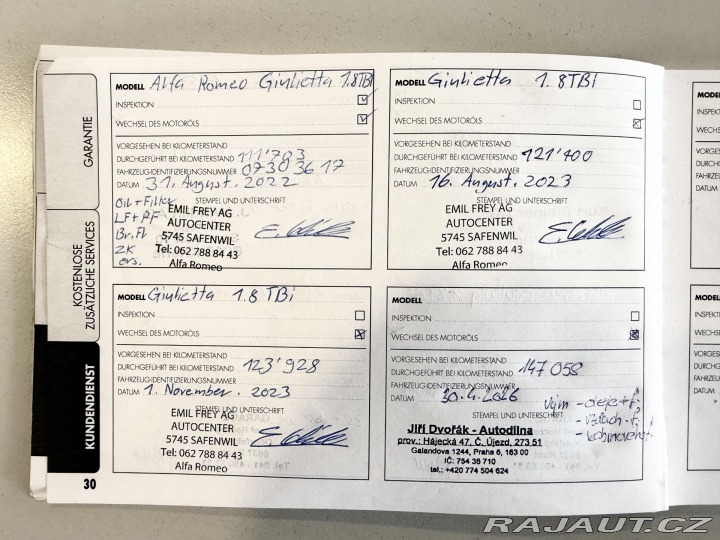 GARANTIE
KOSTENLOSE
ZUSÄTZLICHE SERVICES
KUNDENDIENST
30
MODELL Alfa Romeo Giulietta 1.8TBi
INSPEKTION
WECHSEL DES MOTORÖLS
VORGESEHEN BEI KILOMETERSTAND
DURCHGEFÜHRT BEI KILOMETERSTAND 111'703
FAHRZEUGIDENTIFIZIERUNGSNUMMER 0730 36 17
DATUM 31. August. 2022
STEMPEL UND UNTERSCHRIFT
Oil + Filter
LF + PF
Br. Fl
ZK
ers.
EMIL FREY AG
AUTOCENTER
5745 SAFENWIL
Tel: 062 788 84 43
Alfa Romeo
MODELL Giulietta 1.8TBi
INSPEKTION
WECHSEL DES MOTORÖLS
VORGESEHEN BEI KILOMETERSTAND
DURCHGEFÜHRT BEI KILOMETERSTAND 121'400
FAHRZEUGIDENTIFIZIERUNGSNUMMER
DATUM 16. August. 2023
STEMPEL UND UNTERSCHRIFT
EMIL FREY AG
AUTOCENTER
5745 SAFENWIL
Tel: 062 788 84 43
Alfa Romeo
MODELL Giulietta 1.8 TBi
INSPEKTION
WECHSEL DES MOTORÖLS
VORGESEHEN BEI KILOMETERSTAND
DURCHGEFÜHRT BEI KILOMETERSTAND 123'928
FAHRZEUGIDENTIFIZIERUNGSNUMMER
DATUM 1. November. 2023
STEMPEL UND UNTERSCHRIFT
EMIL FREY AG
AUTOCENTER
5745 SAFENWIL
Tel: 062 788 84 43
Alfa Romeo
MODELL
INSPEKTION
WECHSEL DES MOTORÖLS
VORGESEHEN BEI KILOMETERSTAND
DURCHGEFÜHRT BEI KILOMETERSTAND 147 058
FAHRZEUGIDENTIFIZIERUNGSNUMMER
DATUM 30.4.2026
STEMPEL UND UNTERSCHRIFT
- olej + f.
- vzduch. f.
Jiří Dvořák - Autodílna
prov.: Hájecká 47, Č. Újezd, 273 51
Galandova 1244, Praha 6, 163 00
IČ: 754 36 710
tel.: +420 774 504 624
RAJAUT.CZ